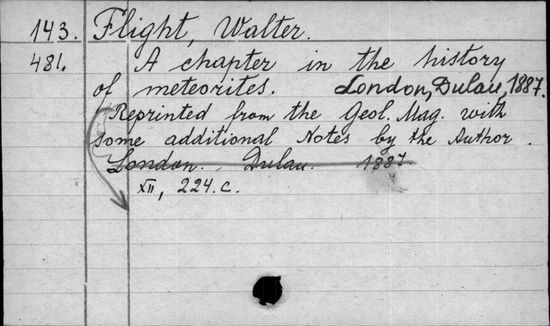 143. Flight, Walter.
481. A chapter in the history
of meteorites. London, Dulau, 1887.
Reprinted from the Geol. Mag. with
some additional Notes by the Author.
London. Dulau. 1887.
XII, 224. c.